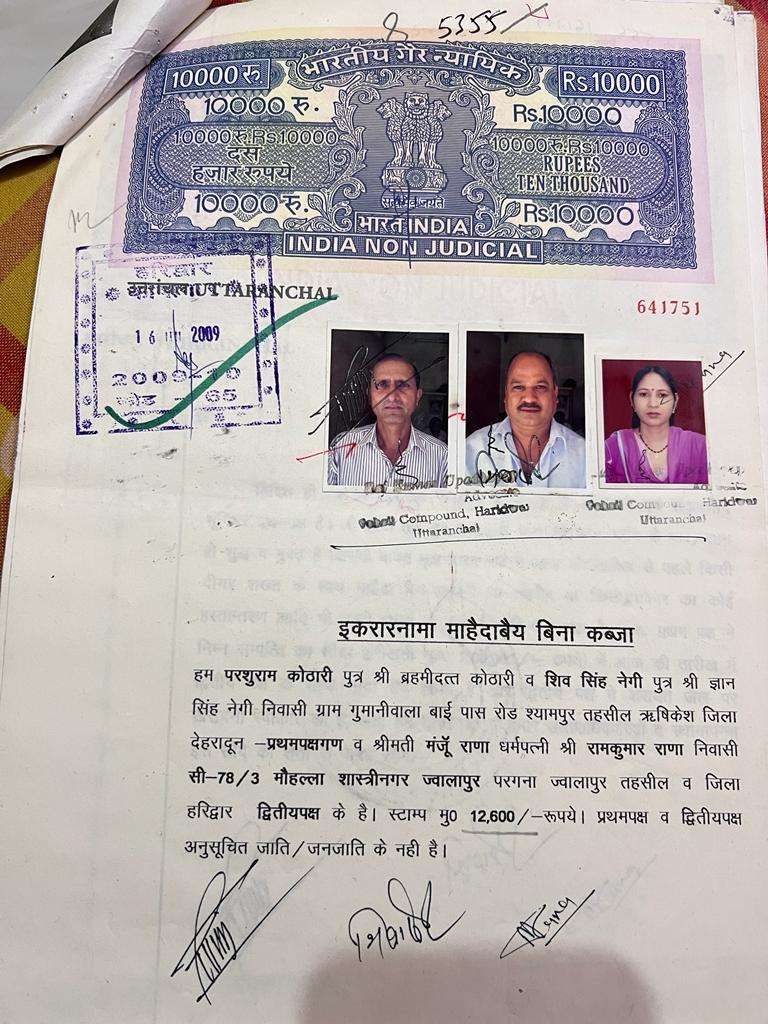 5355
भारतीय गैर न्यायिक
10000 रु
Rs.10000
10000 रु.
Rs.10000
10000रु.Rs10000
10000रु.Rs10000
दस
हजार रुपये
RUPEES
TEN THOUSAND
10000 रु.
Rs.10000
सत्यमेव जयते
भारत INDIA
INDIA NON JUDICIAL
हरिद्वार
उत्तरांचल UTTARANCHAL
641751
16 2009
2009-10
65
Advocate
Compound, Haridwar
Uttaranchal
Compound, Haridwar
Uttaranchal
इकरारनामा माहैदाबैय बिना कब्जा
हम परशुराम कोठारी पुत्र श्री ब्रहमीदत्त कोठारी व शिव सिंह नेगी पुत्र श्री ज्ञान
सिंह नेगी निवासी ग्राम गुमानीवाला बाई पास रोड श्यामपुर तहसील ऋषिकेश जिला
देहरादून –प्रथमपक्षगण व श्रीमती मंजूँ राणा धर्मपत्नी श्री रामकुमार राणा निवासी
सी–78/3 मौहल्ला शास्त्रीनगर ज्वालापुर परगना ज्वालापुर तहसील व जिला
हरिद्वार द्वितीयपक्ष के है। स्टाम्प मु0 12,600/–रूपये। प्रथमपक्ष व द्वितीयपक्ष
अनुसूचित जाति/जनजाति के नही है।